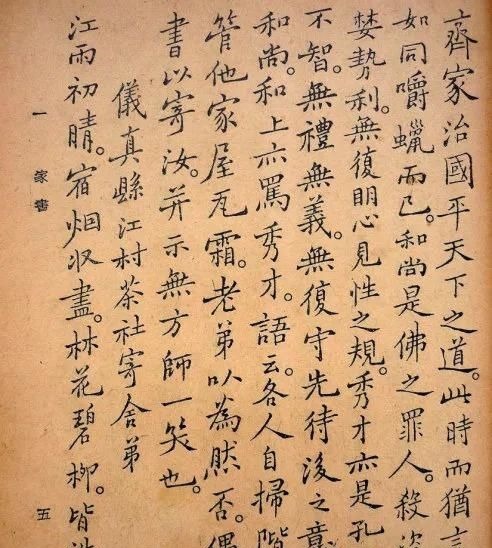 齊家治國平天下之道。此時而猶言
如同嚼蠟而已。和尚是佛之罪人。殺盜
婪勢利。無復明心見性之規。秀才亦是孔
不智。無禮無義。無復守先待後之意
和尚。和上亦罵秀才。語云。各人自掃階
管他家屋瓦霜。老弟以為然否。偶
書以寄汝。并示無方師一笑也。
儀真縣江村茶社寄舍弟
江雨初晴。宿烟収盡。林花碧柳。皆
一 家書 五